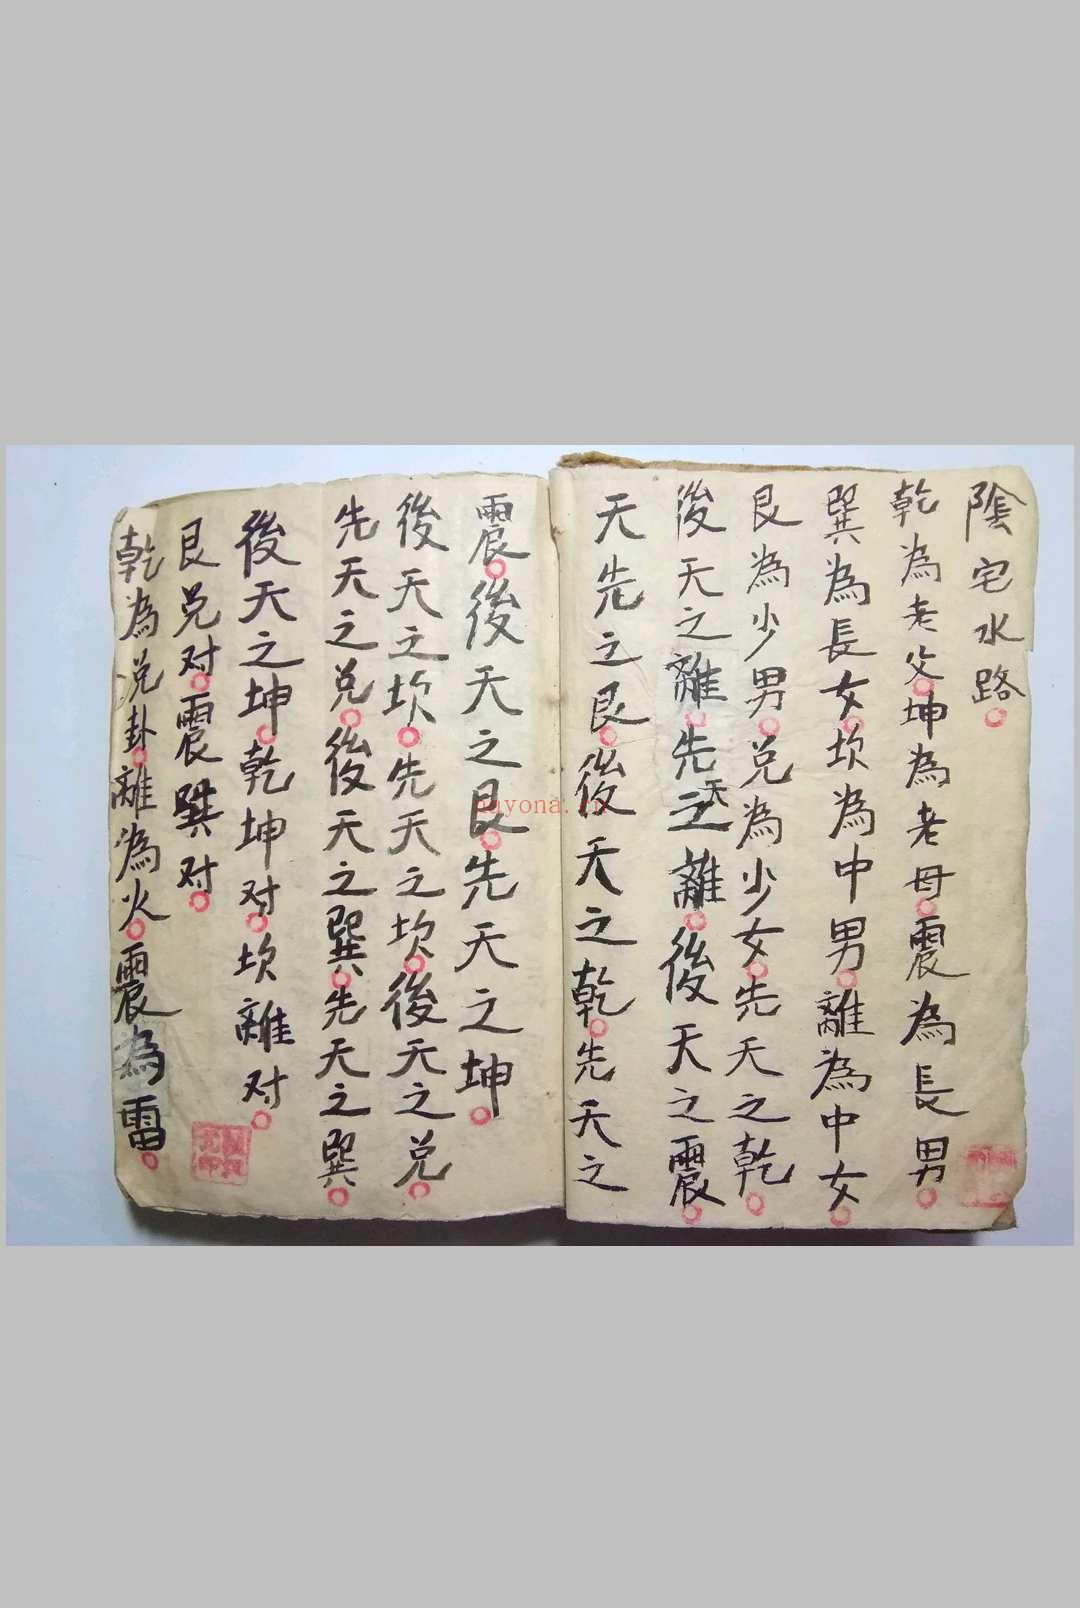 陰宅水路
乾為老父坤為老母震為長男
巽為長女坎為中男離為中女
艮為少男兑為少女先天之乾
後天之離先天之離後天之震
天先之艮後天之乾先天之
震後天之艮先天之坤
後天之坎先天之坎後天之兑
先天之兑後天之巽先天之巽
後天之坤乾坤对坎離对
艮兑对震巽对
乾為兑卦離為火震為雷